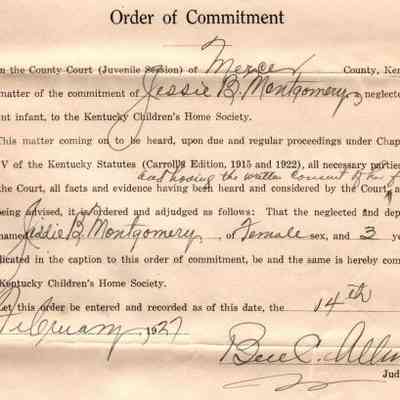 Order of Commitment
n the County Court (Juvenile Session) of Mercer County, Ken
matter of the commitment of Jessie B. Montgomery, neglected
nt infant, to the Kentucky Children's Home Society.
This matter coming on to be heard, upon due and regular proceedings under Chap
V of the Kentucky Statutes (Carroll's Edition, 1915 and 1922), all necessary partie
and having the written consent of her f
the Court, all facts and evidence having been heard and considered by the Court, a
being advised, it is ordered and adjudged as follows: That the neglected and dep
named Jessie B. Montgomery, of Female sex, and 3 ye
dicated in the caption to this order of commitment, be and the same is hereby com
Kentucky Children's Home Society.
Let this order be entered and recorded as of this date, the 14th
February, 1927
C. Allin
Jud